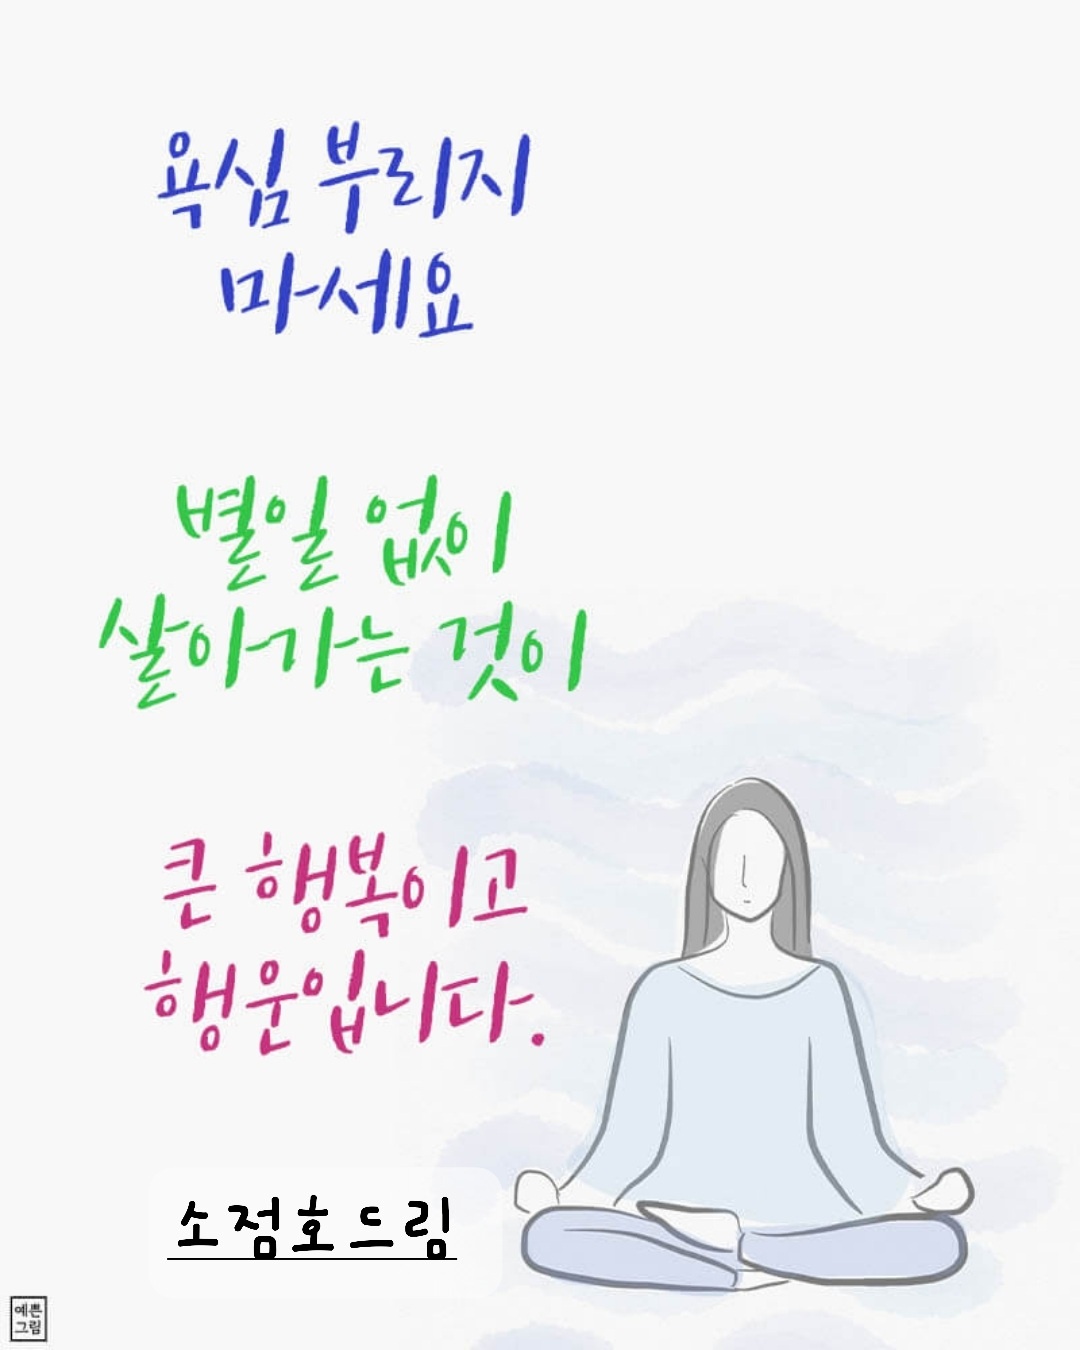 욕심 부리지
마세요
별일 없이
살아가는 것이
큰 행복이고
행운입니다.
소점호드림
예쁜
그림